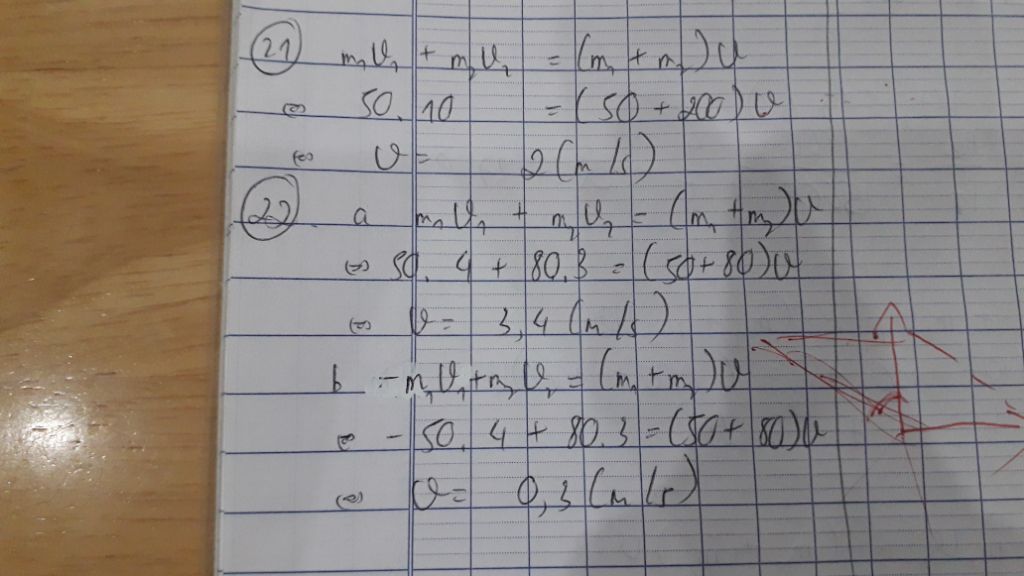 21 m₁v₁ + m₂v₂ = (m₁ + m₂)v
⇔ 50. 10 = (50 + 200)v
⇔ v = 2 (m/s)
22 a m₁v₁ + m₂v₂ = (m₁ + m₂)v
⇔ 50. 4 + 80.3 = (50+80)v
⇔ v = 3,4 (m/s)
b - m₁v₁ + m₂v₂ = (m₁ + m₂)v
⇔ - 50. 4 + 80.3 = (50+ 80)v
⇔ v = 0,3 (m/s)